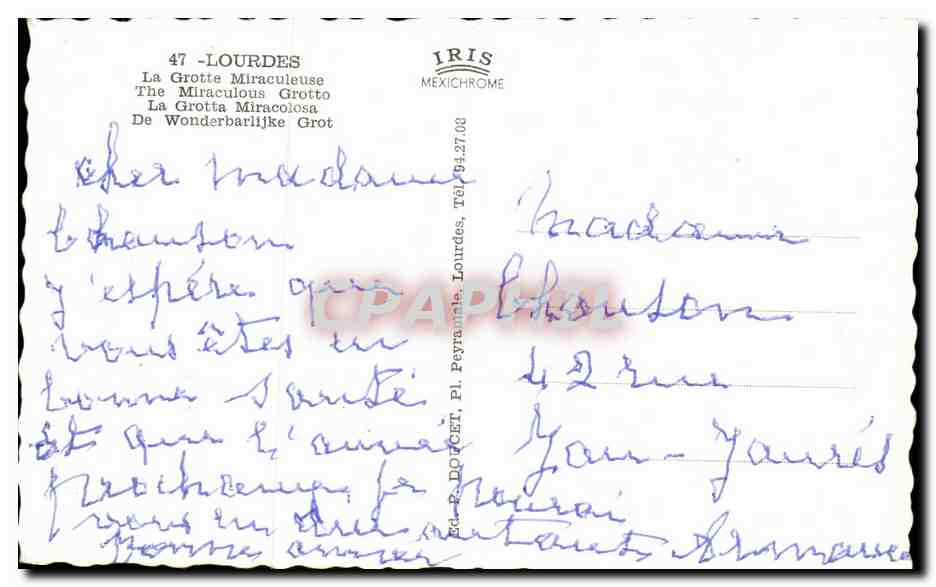 47 -LOURDES
La Grotte Miraculeuse
The Miraculous Grotto
La Grotta Miracolosa
De Wonderbarlijke Grot
IRIS
MEXICHROME
Ed. P. DOUCET, Pl. Peyramale, Lourdes, Tél. 94.27.03
CPAPHIL
cher madame
Chauson
j'espére que
vous êtes en
bonne santé
et que l'anné
prochaine je pourai
vous en dire autant
bonne année
Madame
Chouson
42 rue
Jan-Jaurés